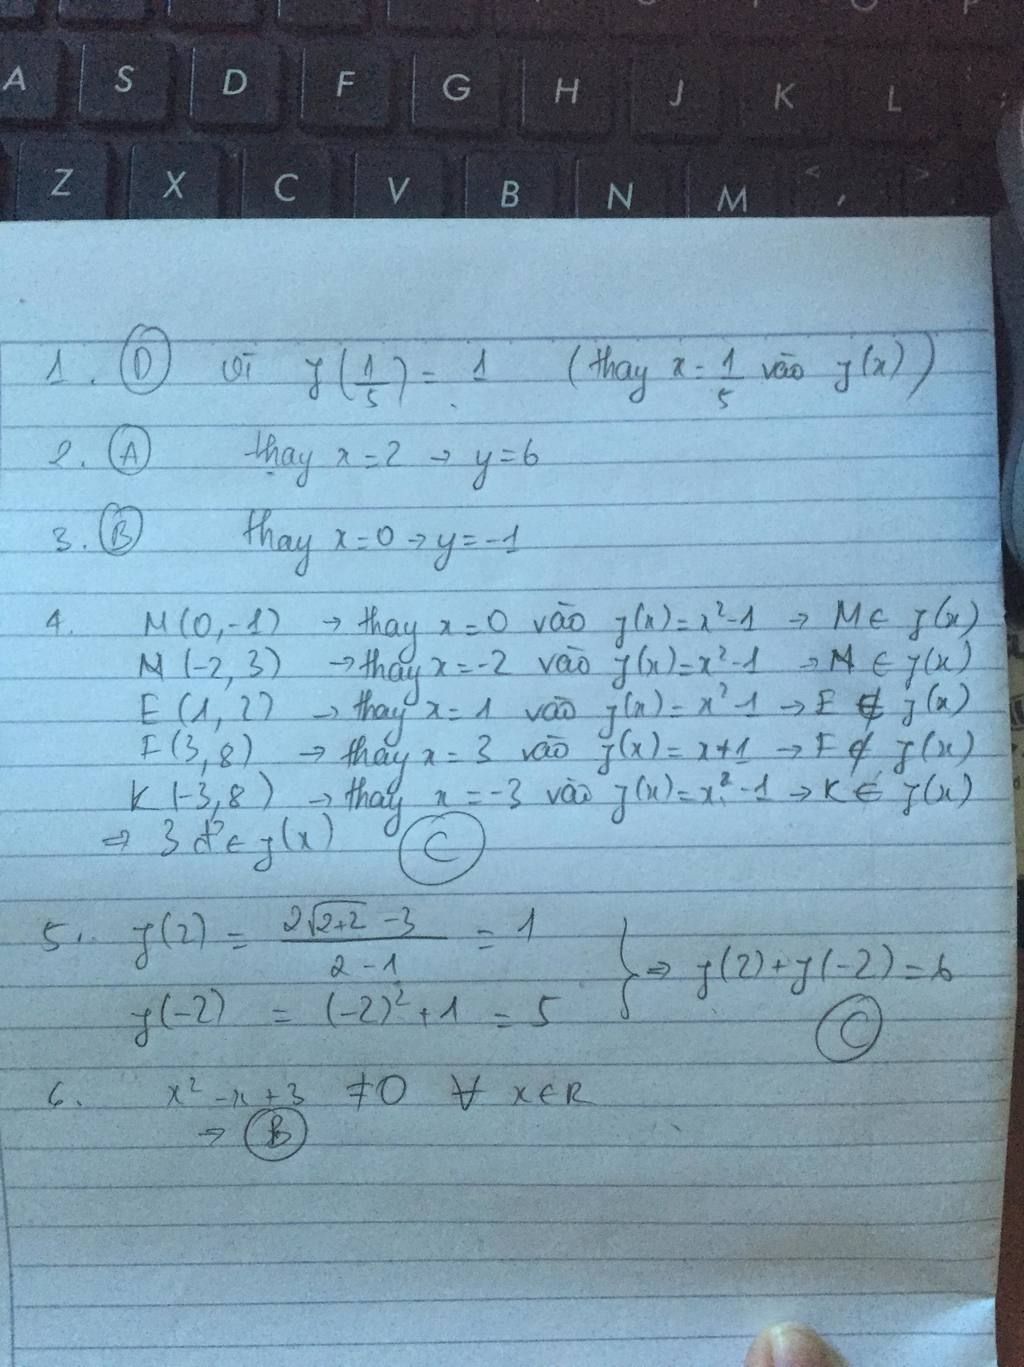 A S D F G H J K L
Z X C V B N M < , >
1. (D) vì f(1/5) = 1 (thay x = 1/5 vào f(x))
2. (A) thay x=2 → y=6
3. (B) thay x=0 → y=-1
4. M(0,-1) → thay x=0 vào f(x)=x²-1 → M ∈ f(x)
N(-2, 3) → thay x=-2 vào f(x)=x²-1 → N ∈ f(x)
E(1, 2) → thay x=1 vào f(x)=x²-1 → E ∉ f(x)
F(3,8) → thay x=3 vào f(x)=x+1 → F ∉ f(x)
K(-3,8) → thay x=-3 vào f(x)=x²-1 → K ∈ f(x)
⇒ 3 đ' ∈ f(x) (C)
5. f(2) = (2√(2+2) - 3)/(2-1) = 1
f(-2) = (-2)²+1 = 5 } ⇒ f(2)+f(-2)=6
(C)
6. x²-x+3 ≠0 ∀ x∈R
⇒ (B)